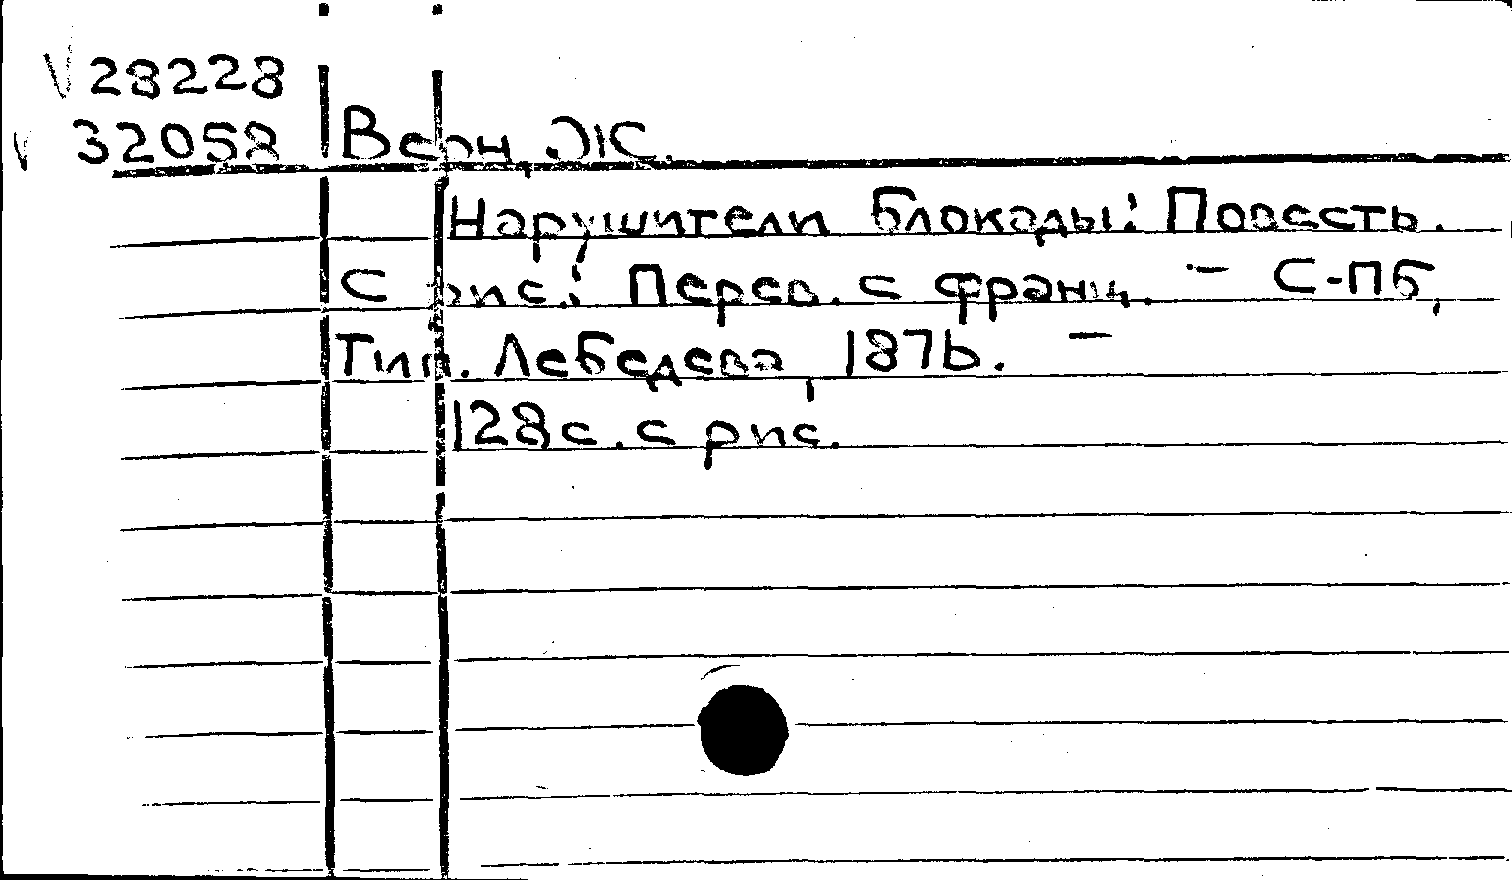 V 28228
V 32058 Верн, Ж.
Нарушители блокады: Повесть.
С рис.: Перев. с франц. — С-Пб,
Тип. Лебедева, 1876. —
128 с. с рис.